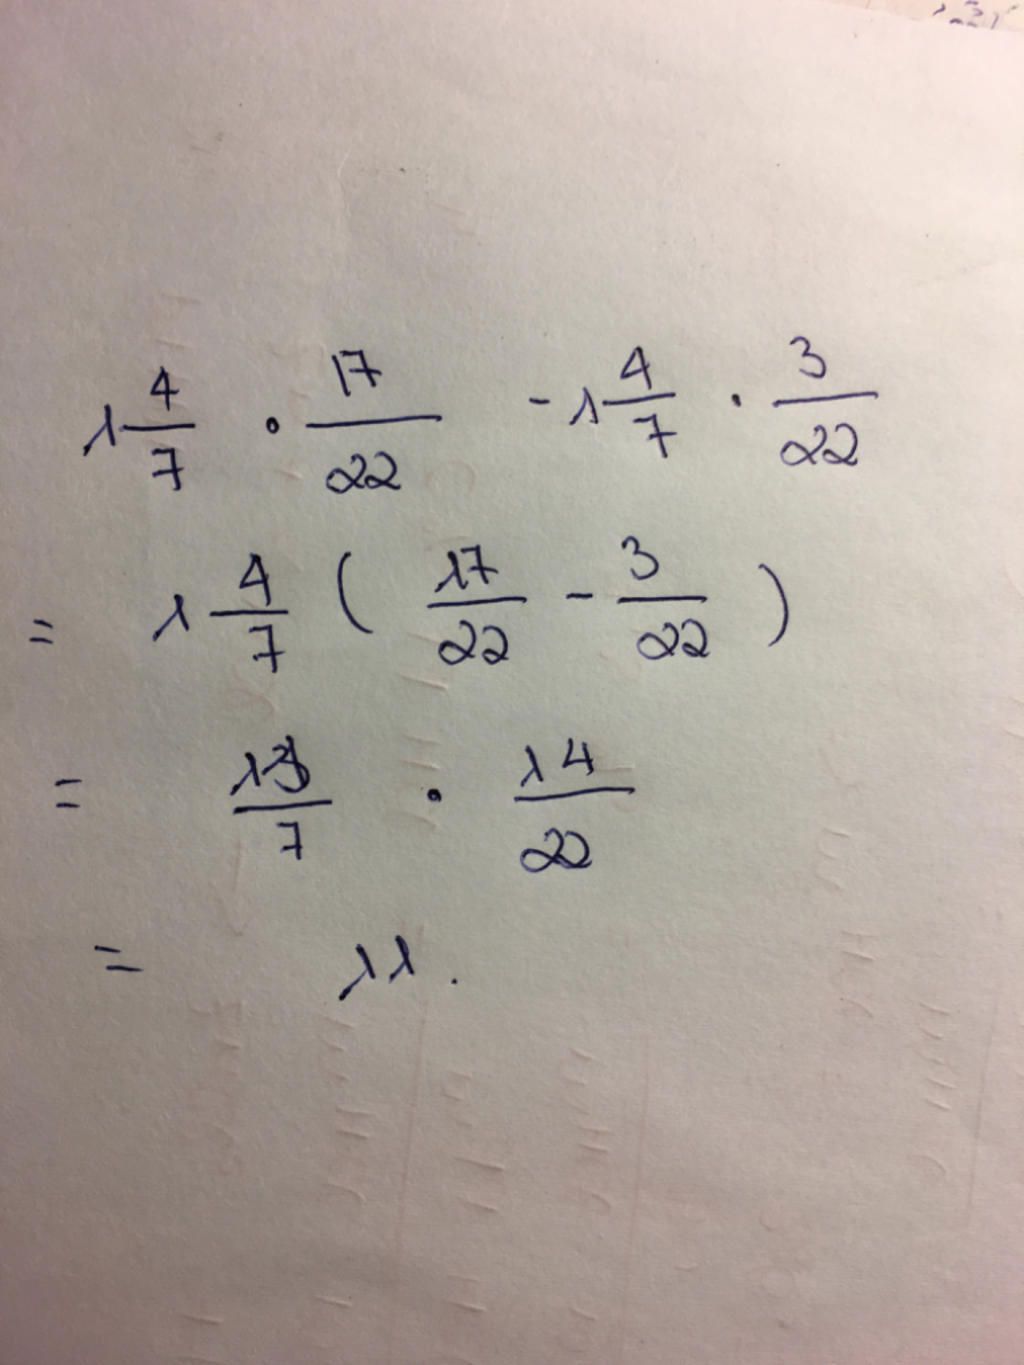 1 4/7 · 17/22 - 1 4/7 · 3/22
= 1 4/7 ( 17/22 - 3/22 )
= /7 · 14/22
= 11.